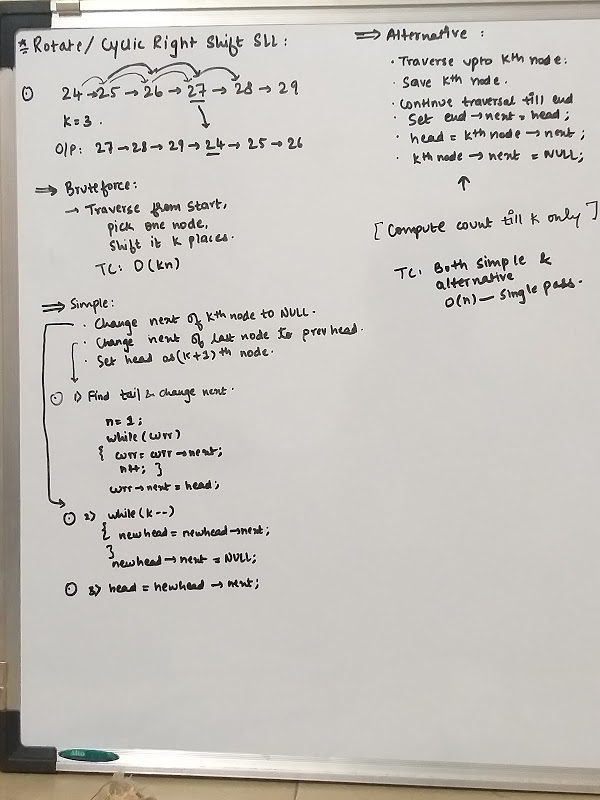 * Rotate / Cyclic Right Shift SLL :
24 → 25 → 26 → 27 → 28 → 29
K = 3 .
O/P : 27 → 28 → 29 → 24 → 25 → 26
⇒ Bruteforce :
→ Traverse from start,
pick one node,
shift it k places .
TC : O(kn)
⇒ Simple :
· Change next of kth node to NULL .
· Change next of last node to prev head .
· Set head as (k+1)th node .
1) Find tail & change next .
n = 1 ;
while (curr)
{ curr = curr → next ;
n++ ; }
curr → next = head ;
2) while (k--)
{ newhead = newhead → next ;
}
newhead → next = NULL ;
3) head = newhead → next ;
⇒ Alternative :
· Traverse upto kth node .
· Save kth node .
· Continue traversal till end
Set end → next = head ;
· head = kth node → next ;
· kth node → next = NULL ;
↑
[ Compute count till k only ]
TC : Both simple &
alternative
O(n) — Single pass .